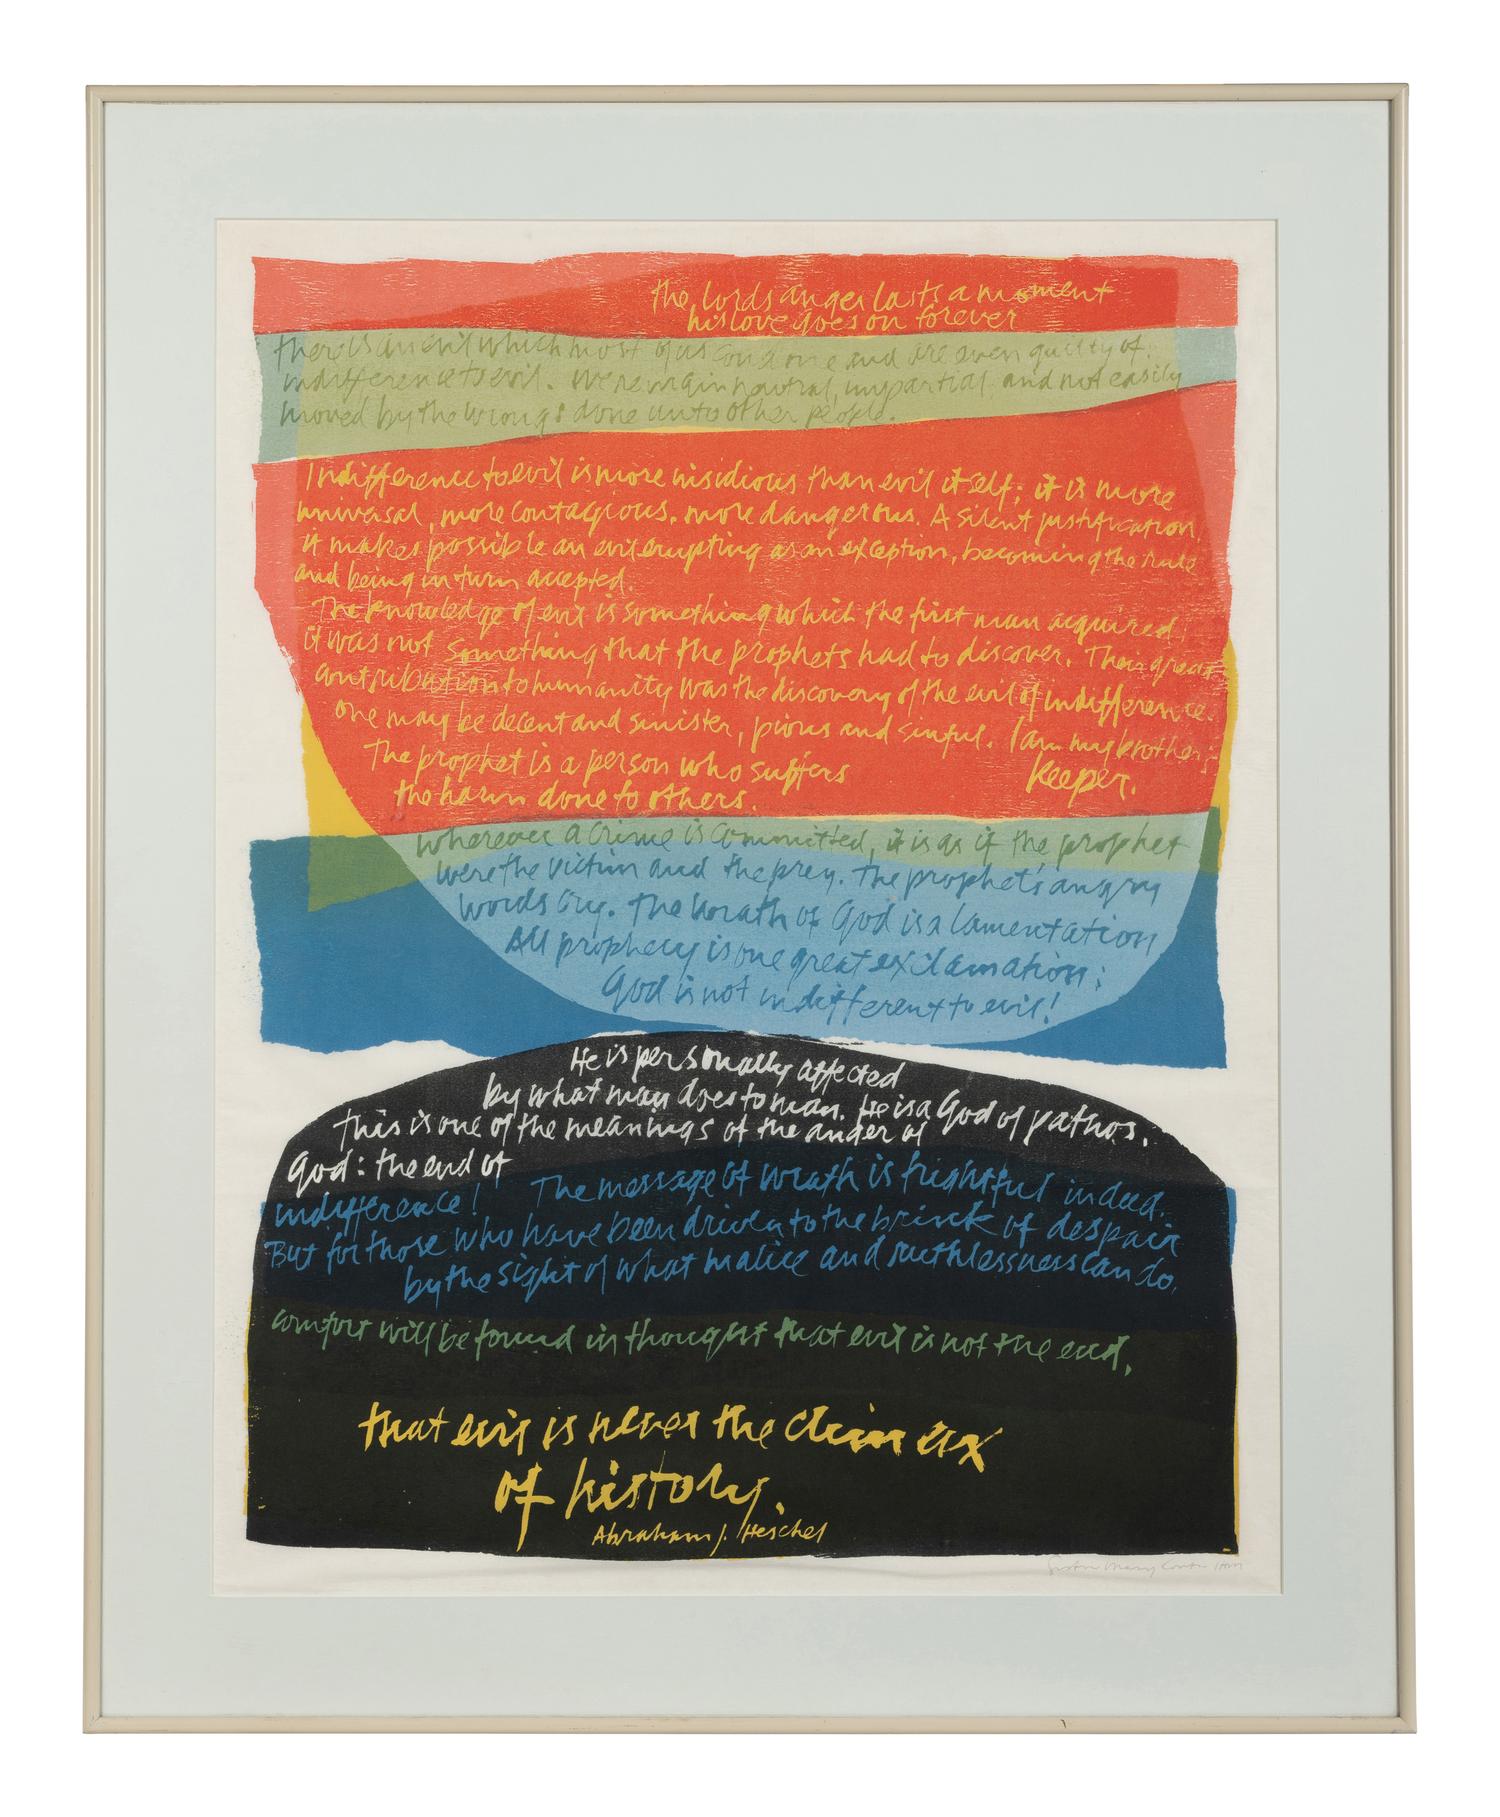 the lords anger lasts a moment
his love goes on forever
there is an evil which most of us condone and are even guilty of:
indifference to evil. We remain neutral, impartial, and not easily
moved by the wrongs done unto other people.
Indifference to evil is more insidious than evil itself; it is more
universal, more contagious, more dangerous. A silent justification,
it makes possible an evil erupting as an exception, becoming the rule
and being in turn accepted.
The knowledge of evil is something which the first man acquired;
it was not something that the prophets had to discover. Their great
contribution to humanity was the discovery of the evil of indifference.
one may be decent and sinister, pious and sinful. I am my brother's
keeper.
The prophet is a person who suffers
the harm done to others.
wherever a crime is committed, it is as if the prophet
were the victim and the prey. The prophet's angry
words cry. The wrath of God is a lamentation
All prophecy is one great exclamation;
God is not indifferent to evil!
He is personally affected
by what man does to man. He is a God of pathos.
This is one of the meanings of the anger of
God: the end of
indifference! The message of wrath is frightful indeed.
But for those who have been driven to the brink of despair
by the sight of what malice and ruthlessness can do,
comfort will be found in thought that evil is not the end,
that evil is never the climax
of history.
Abraham J. Heschel
Sister Mary Corita IHM